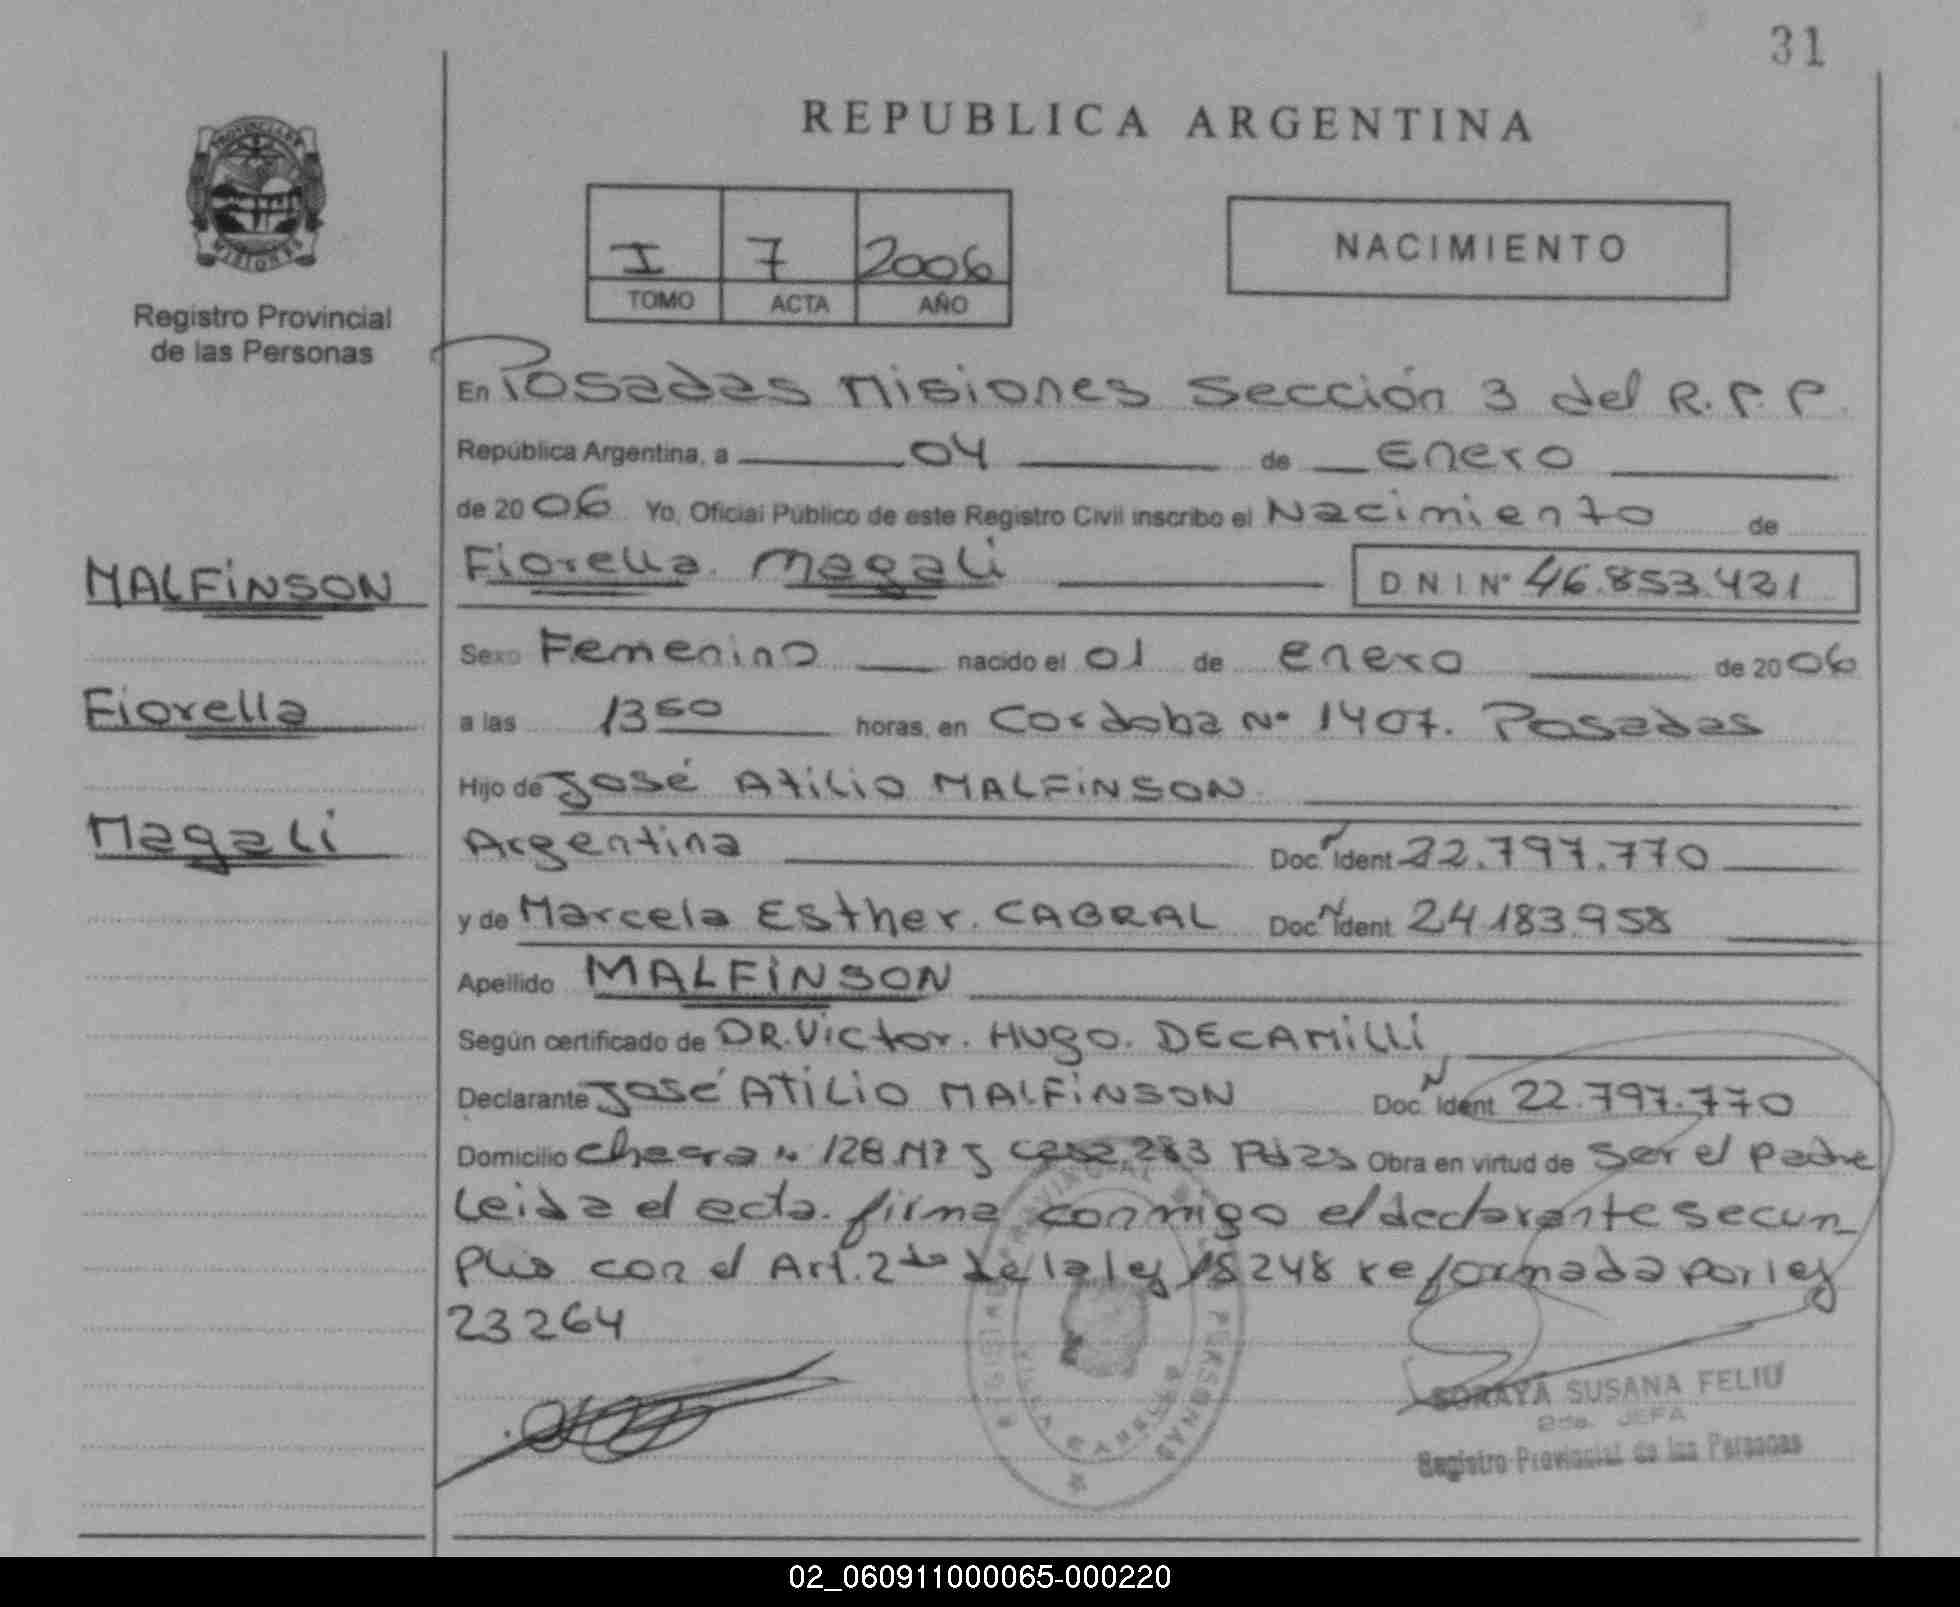 31
REPUBLICA ARGENTINA
PROVINCIA DE
MISIONES
Registro Provincial
de las Personas
I 7 2006
TOMO ACTA AÑO
NACIMIENTO
En Posadas Misiones Sección 3 del R.P.P.
República Argentina, a 04 de Enero
de 2006 Yo, Oficial Público de este Registro Civil inscribo el Nacimiento de
MALFiNSON
Fiorella Magali D.N.I. Nº 46.853.421
Sexo Femenino nacido el 01 de enero de 2006
Fiorella
a las 13 50 horas, en Cordoba Nº 1407. Posadas
Hijo de José Atilio MALFiNSON
Magali
Argentina Doc. N Ident. 22.797.770
y de Marcela Esther. CABRAL Doc. N Ident. 24.183.958
Apellido MALFiNSON
Según certificado de DR. Victor. Hugo. DECAMiLLi
Declarante José ATiLiO MALFiNSON Doc. N Ident. 22.797.770
Domicilio chacra Nº 128 Mz 5 casa 283 Pdas Obra en virtud de ser el padre
Leida el acta. firma conmigo el declarante se cun_
plio con el Art. 2do de la ley 18248 reformada por ley
23264
REGISTRO PROVINCIAL DE LAS PERSONAS
VILLA CABELLO
SORAYA SUSANA FELIU
2da. JEFA
Registro Provincial de las Personas
02_060911000065-000220